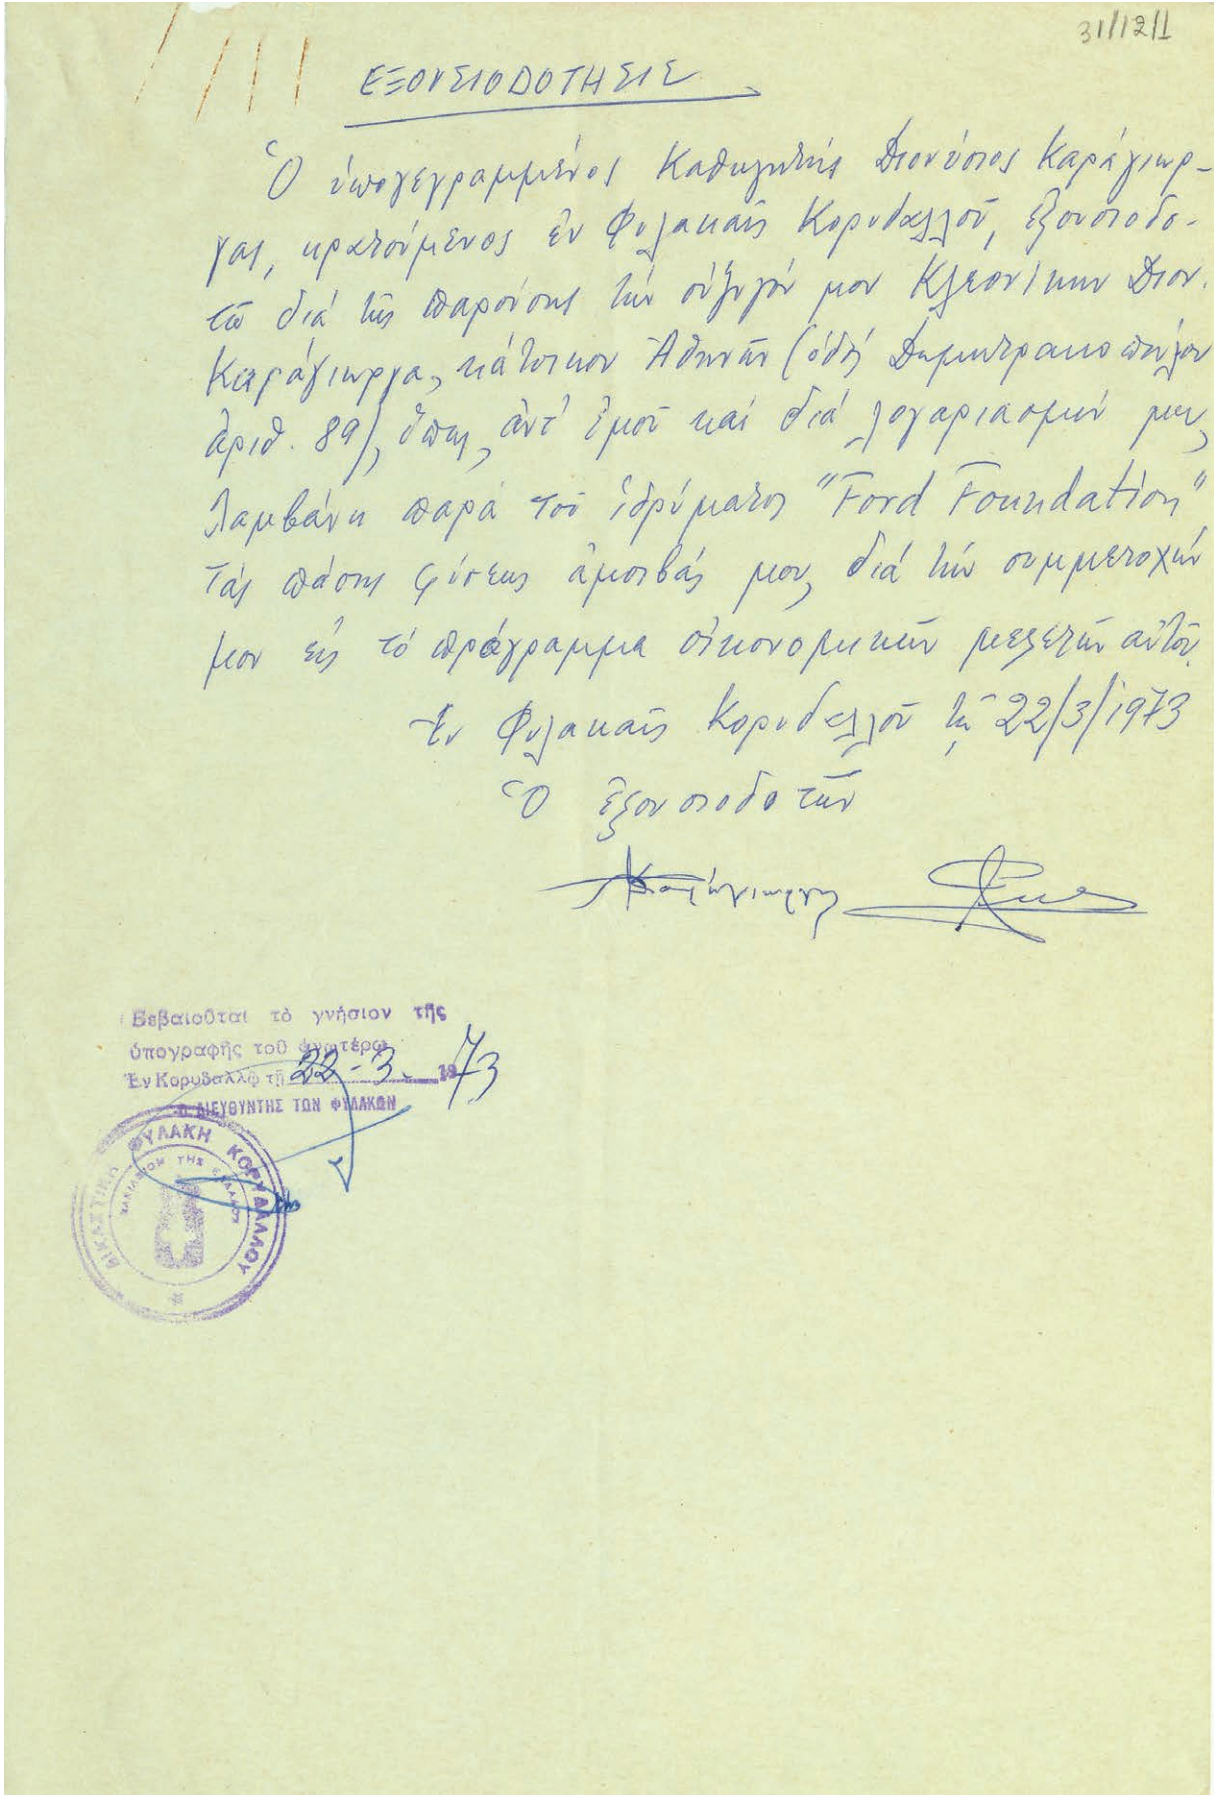 31/12/1
ΕΞΟΥΣΙΟΔΟΤΗΣΙΣ
Ὁ ὑπογεγραμμένος Καθηγητής Διονύσιος Καράγιωρ-
γας, κρατούμενος ἐν Φυλακαῖς Κορυδαλλοῦ, ἐξουσιοδο-
τῶ διά τῆς παρούσης τήν σύζυγόν μου Κλεονίκην Διον.
Καράγιωργα, κάτοικον Ἀθηνῶν (ὁδός Δημητρακοπούλου
ἀριθ. 89), ὅπως, ἀντ' ἐμοῦ καί διά λογαριασμόν μου,
λαμβάνη παρά τοῦ ἱδρύματος "Ford Foundation"
τάς πάσης φύσεως ἀμοιβάς μου, διά τήν συμμετοχήν
μου εἰς τό πρόγραμμα οἰκονομικῶν μελετῶν αὐτοῦ.
Ἐν Φυλακαῖς Κορυδαλλοῦ τῇ 22/3/1973
Ὁ ἐξουσιοδοτῶν
Καράγιωργας
Βεβαιοῦται τὸ γνήσιον τῆς
ὑπογραφῆς τοῦ ἀνωτέρω
Ἐν Κορυδαλλῷ τῇ 22-3-1973
Ο ΔΙΕΥΘΥΝΤΗΣ ΤΩΝ ΦΥΛΑΚΩΝ
ΔΙΚΑΣΤΙΚΗ ΦΥΛΑΚΗ ΚΟΡΥΔΑΛΛΟΥ
ΒΑΣΙΛΕΙΟΝ ΤΗΣ ΕΛΛΑΔΟΣ